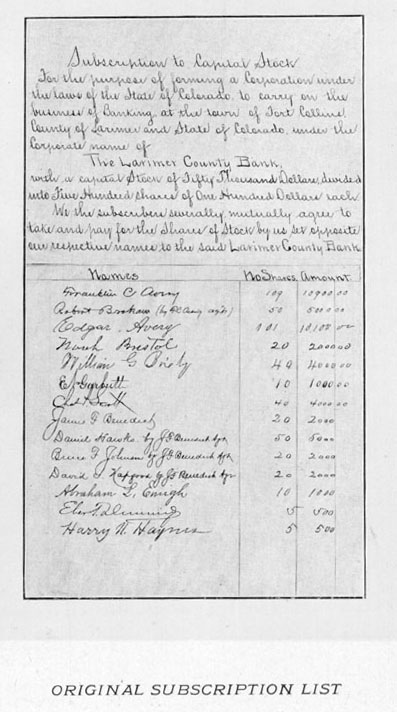 Subscription to Capital Stock
For the purpose of forming a Corporation under
the laws of the State of Colorado, to carry on the
business of Banking at the town of Fort Collins
County of Larimer and State of Colorado, under the
Corporate name of
The Larimer County Bank,
with a capital Stock of Fifty Thousand Dollars, divided
into Five Hundred shares of One Hundred Dollars each
We the subscribers severally, mutually agree to
take and pay for the Shares of Stock by us set opposite
our respective names to the said Larimer County Bank
Names No Shares Amount
Franklin C Avery 109 10900 00
Robert 50 5000 00
Edgar Avery 101 10,100 00
Noah Bristol 20 2000 00
William G 40 4000 00
10 1000 00
Scott 40 4000 00
F Benedict 20 2000
Daniel Hawks by J F Benedict Agt 50 5000
F Johnson by J F Benedict Agt 20 2000
David by J F Benedict Agt 20 2000
Abraham L. 10 1000
5 500
Harry N. Haynes 5 500
ORIGINAL SUBSCRIPTION LIST